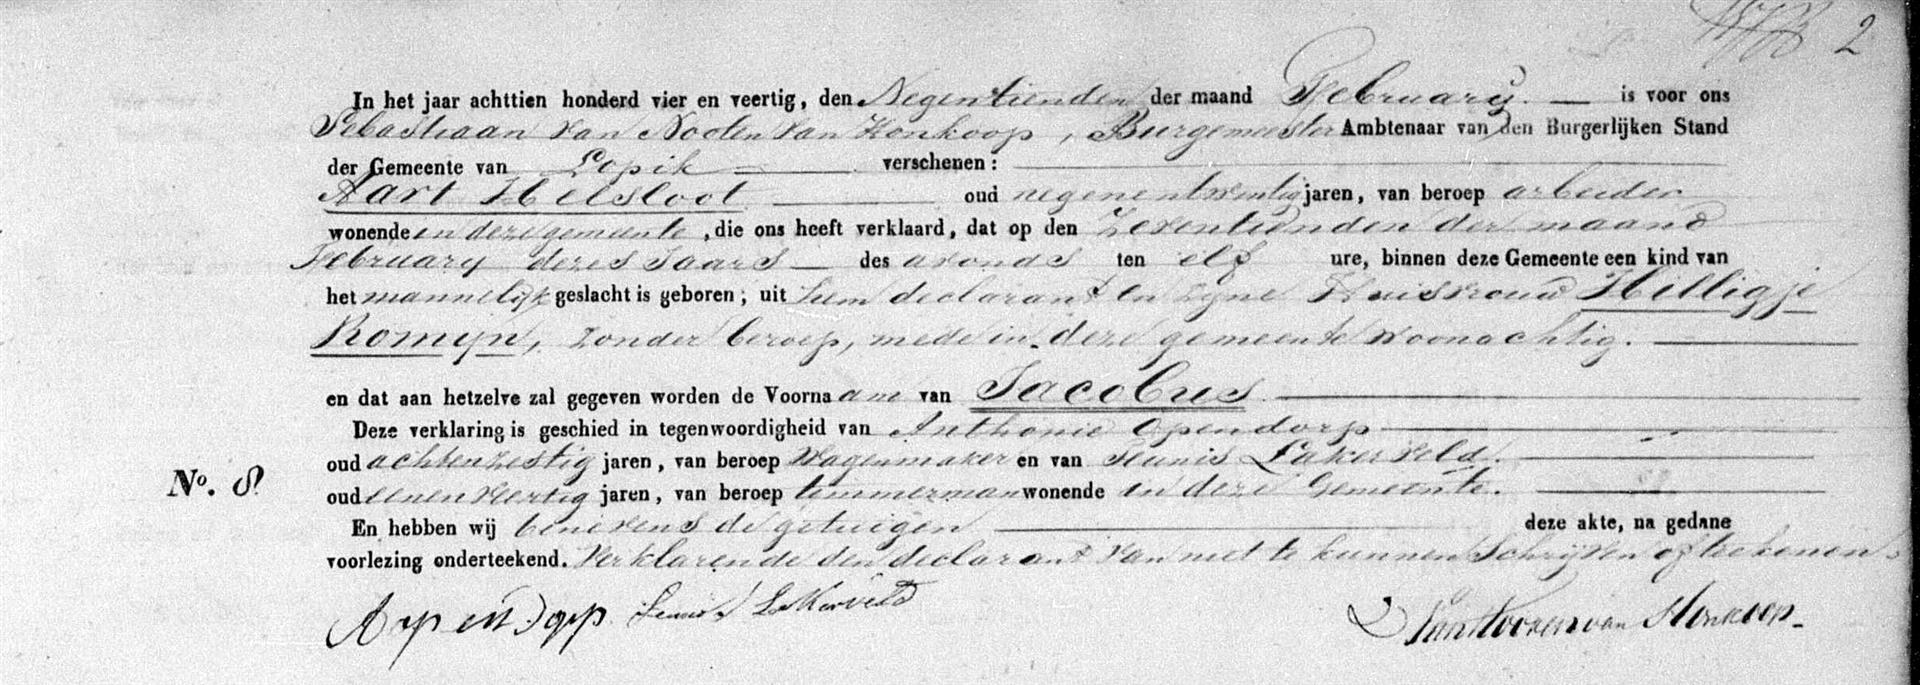 2
In het jaar achttien honderd vier en veertig, den Negentienden der maand February is voor ons
Sebastiaan van Nooten van Honkoop, Burgemeester Ambtenaar van den Burgerlijken Stand
der Gemeente van Lopik verschenen:
Aart Helsloot oud negenentwintig jaren, van beroep arbeider
wonende in deze gemeente, die ons heeft verklaard, dat op den Zeventienden der maand
February dezes Jaars des avonds ten elf ure, binnen deze Gemeente een kind van
het mannelijk geslacht is geboren; uit hem declarant en zyne Huisvrouw Hilligje
Romyn, zonder beroep, mede in deze gemeente woonachtig.
en dat aan hetzelve zal gegeven worden de Voornaam van Jacobus
Deze verklaring is geschied in tegenwoordigheid van Anthonie Opendorp
No. 8
oud achtenzestig jaren, van beroep Wagenmaker en van Teunis Lakerveld.
oud eenenveertig jaren, van beroep timmerman wonende in deze Gemeente.
En hebben wij benevens de getuigen deze akte, na gedane
voorlezing onderteekend. Verklarende den declarant van niet te kunnen Schrijven of tekenen.
A op en Dorp Teunis Lakerveld S van Nooten van Honkoop